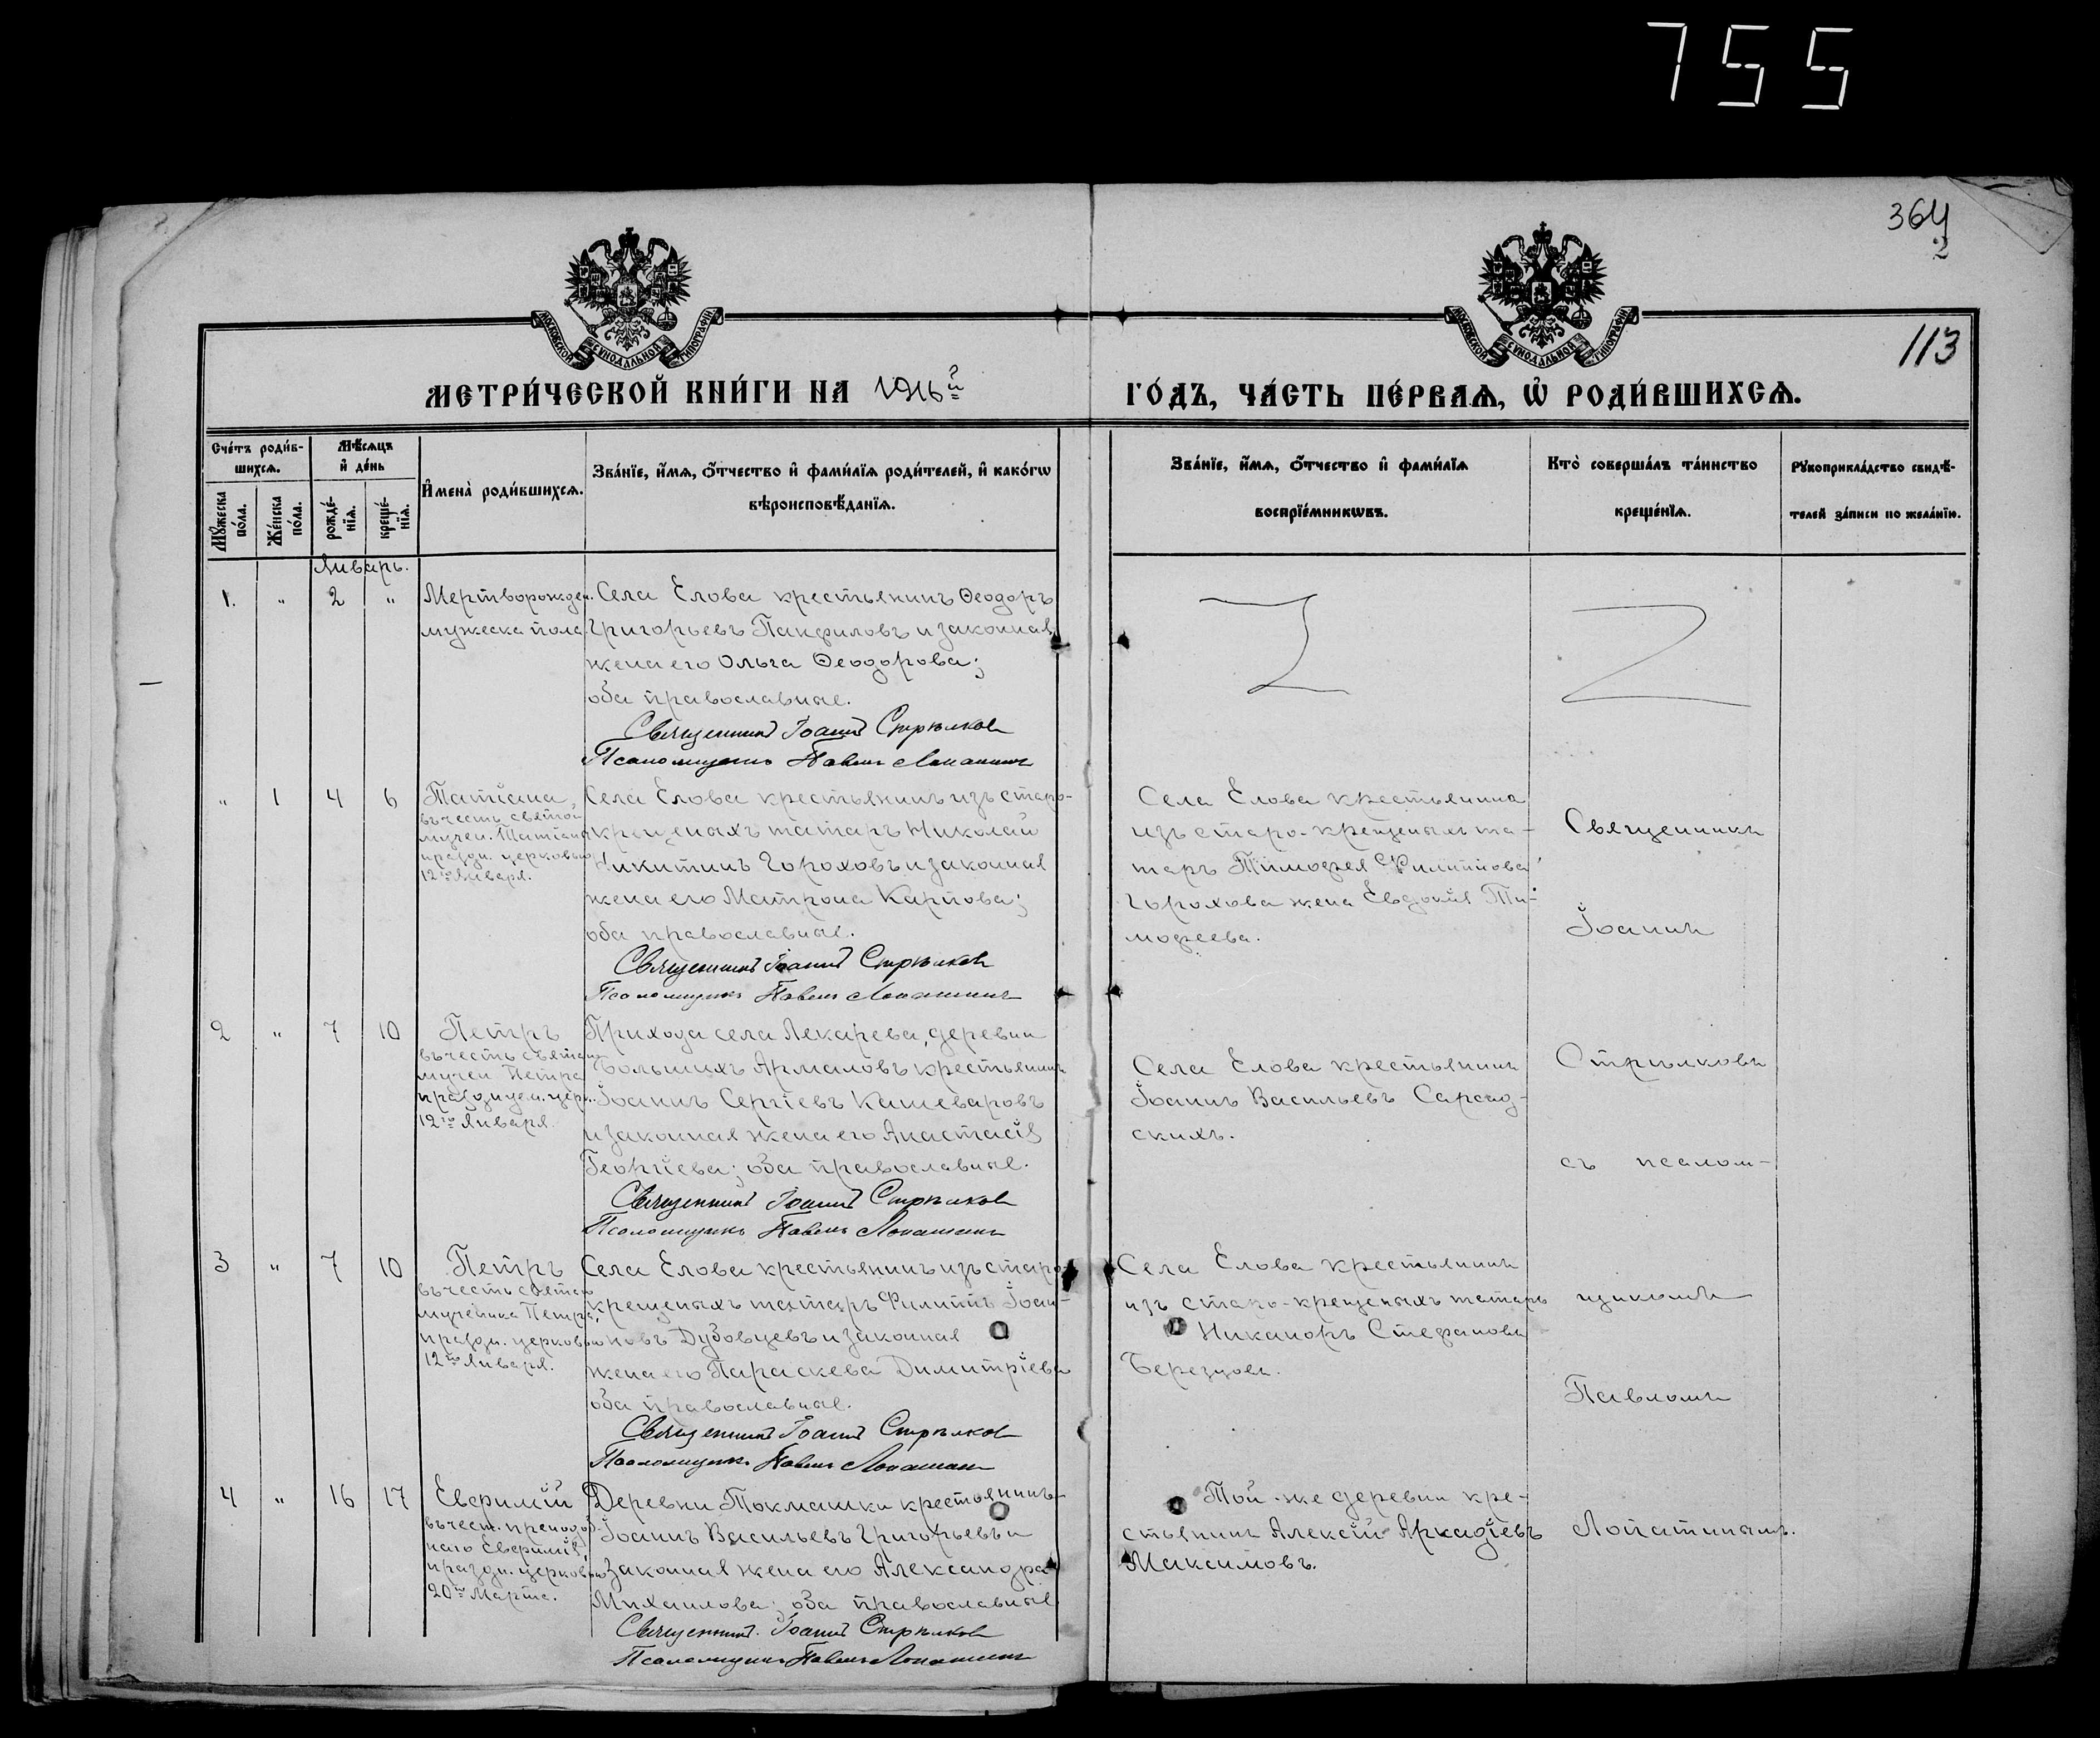 755
364
2
113
МОСКОВСКОЙ СѴНОДАЛЬНОЙ ТИПОГРАФІИ
МОСКОВСКОЙ СѴНОДАЛЬНОЙ ТИПОГРАФІИ
МЕТРИ́ЧЕСКОЙ КНИ́ГИ НА 1916й
ГО́ДЪ, ЧА́СТЬ ПЕ́РВАѦ, Ѡ҆ РОДИ́ВШИХСѦ.
Сче́тъ роди́в-
шихсѧ.
Мѣ́сѧцъ
и҆ де́нь
Мꙋ́жеска
по́ла.
Же́нска
по́ла.
рожде́-
нїѧ.
креще́-
нїѧ.
И҆мена̀ роди́вшихсѧ.
Зва́нїе, и҆́мѧ, ѻ҆́тчество и҆ фами́лїѧ роди́телей, и҆ како́гѡ
вѣроисповѣ́данїѧ.
Зва́нїе, и҆́мѧ, ѻ҆́тчество и҆ фами́лїѧ
воспрїе́мникѡвъ.
Кто̀ соверша́лъ та́инство
креще́нїѧ.
Рꙋкоприкла́дство свидѣ́-
телей за́писи по жела́нїю.
Январь.
1. " 2 " Мертворожден.
мужеска пола.
Села Елова крестьянинъ Ѳеодоръ
Григорьевъ Панфиловъ и законная
жена его Ольга Ѳеодорова;
оба православные.
Священникъ Іоаннъ Стрѣлковъ
Псаломщикъ Павелъ Лопатинъ
" 1 4 6 Татіана,
въ честь святой
мучен. Татіаны
праздн. церковью
12го Января.
Села Елова крестьянинъ изъ старо-
крещеныхъ татаръ Николай
Никитинъ Гороховъ и законная
жена его Матрона Карпова;
оба православные.
Священникъ Іоаннъ Стрѣлковъ
Псаломщикъ Павелъ Лопатинъ
Села Елова крестьянина
изъ старо-крещеныхъ та-
таръ Тимофея Филиппова
Горохова жена Евдокія Ти-
мофеева.
2 " 7 10 Петръ
въ честь святаго
мучен. Петра
празднуем. церк.
12го Января.
Прихода села Лекарева, деревни
Большихъ Армаловъ крестьянинъ
Іоаннъ Сергіевъ Кашеваровъ
и законная жена его Анастасія
Георгіева; оба православные.
Священникъ Іоаннъ Стрѣлковъ
Псаломщикъ Павелъ Лопатинъ
Села Елова крестьянинъ
Іоаннъ Васильевъ Сарсад-
скихъ.
3 " 7 10 Петръ
въ честь святаго
мученика Петра,
праздн. церковью
12го Января.
Села Елова крестьянинъ изъ старо-
крещеныхъ татаръ Филиппъ Іоан-
новъ Дубовцевъ и законная
жена его Параскева Димитріева
оба православные.
Священникъ Іоаннъ Стрѣлковъ
Псаломщикъ Павелъ Лопатинъ
Села Елова крестьянинъ
изъ старо-крещеныхъ татаръ
Никаноръ Стефановъ
Березцовъ.
4 " 16 17 Евфимій
въ чест. преподоб-
наго Евфимія,
праздн. церковью
20го Марта.
Деревни Токмашки крестьянинъ
Іоаннъ Васильевъ Григорьевъ и
законная жена его Александра
Михаилова; оба православные
Священникъ Іоаннъ Стрѣлковъ
Псаломщикъ Павелъ Лопатинъ
Той-же деревни кре-
стьянинъ Алексій Аркадіевъ
Максимовъ.
Священникъ
Іоаннъ
Стрѣлковъ
съ псалом-
щикомъ
Павломъ
Лопатинымъ.